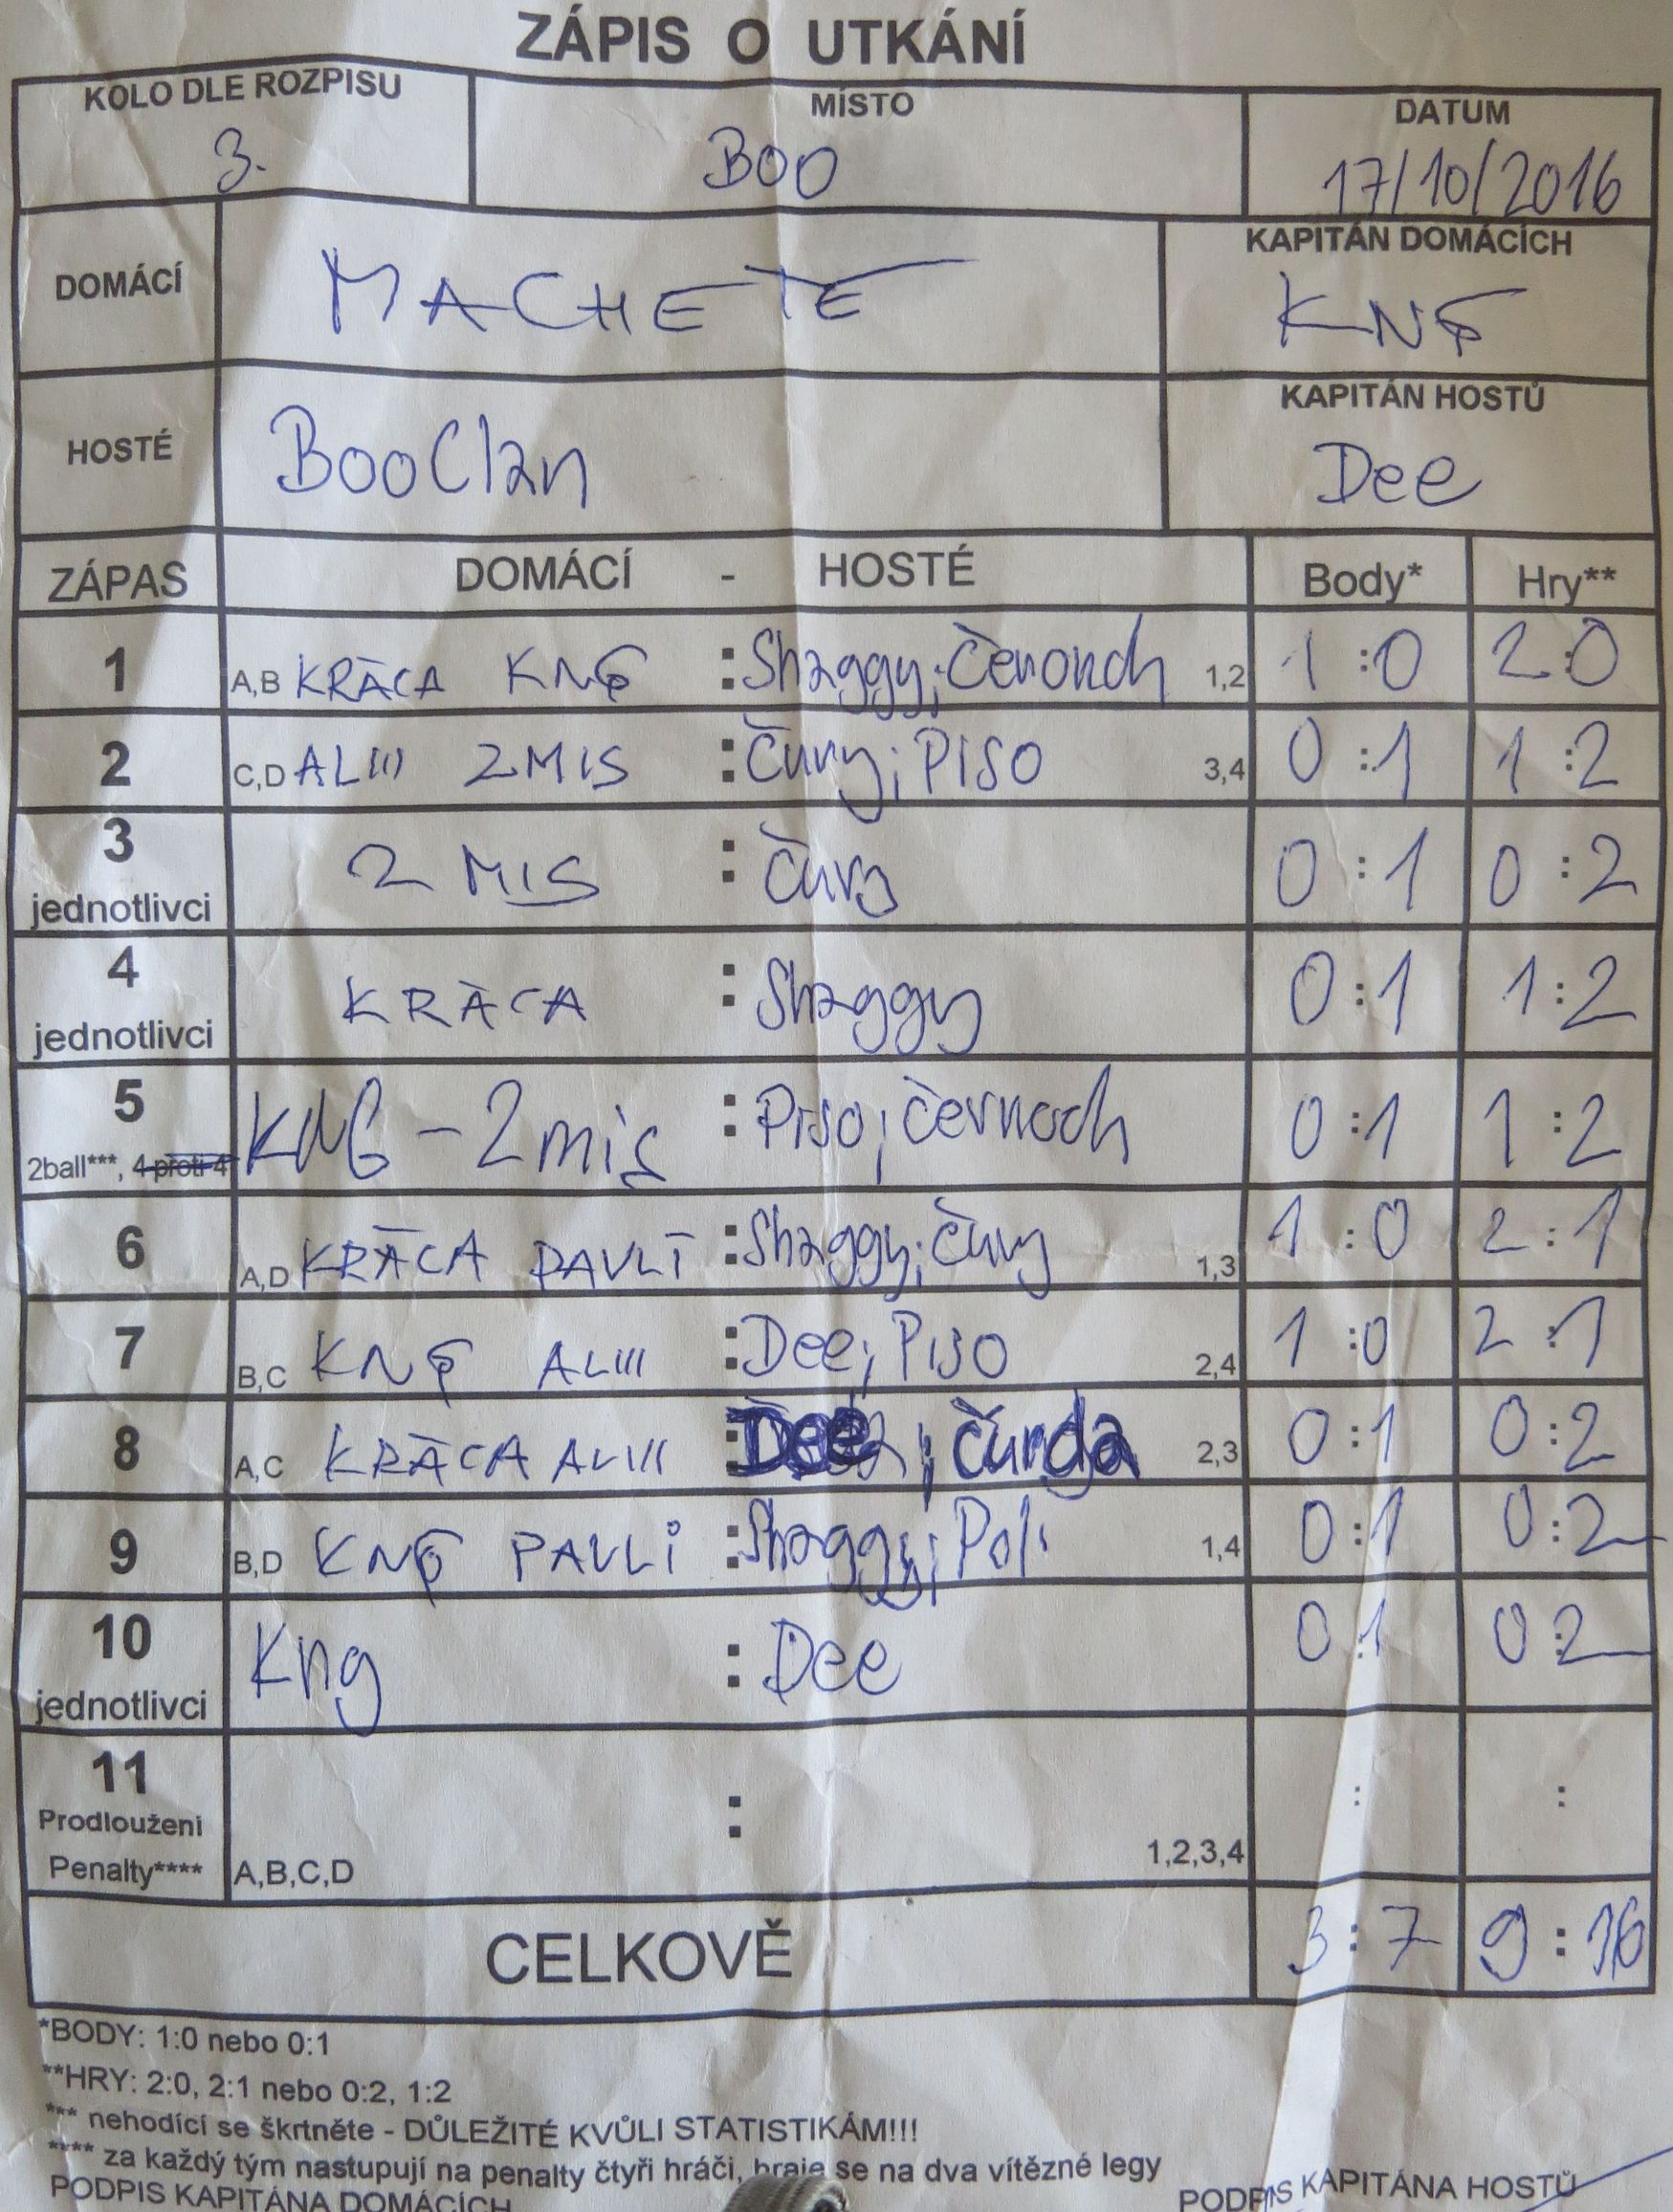 ZÁPIS O UTKÁNÍ
KOLO DLE ROZPISU MÍSTO DATUM
3. BOO 17/10/2016
DOMÁCÍ MACHETE KAPITÁN DOMÁCÍCH
KNG
HOSTÉ BooClan KAPITÁN HOSTŮ
Dee
ZÁPAS DOMÁCÍ - HOSTÉ Body* Hry**
1 A,B KRÁCA KNG : Shaggy; 1,2 1:0 2:0
2 C,D ALIII 2MIS : Čury; PISO 3,4 0:1 1:2
3 jednotlivci 2 MIS : Čury 0:1 0:2
4 jednotlivci KRÁCA : Shaggy 0:1 1:2
5 2ball***, 4 proti 4 KNG - 2mis : Piso; černoch 0:1 1:2
6 A,D KRÁCA PAVLI : Shaggy; Čury 1,3 1:0 2:1
7 B,C KNG ALIII : Dee; PISO 2,4 1:0 2:1
8 A,C KRÁCA ALIII : Dee; čurda 2,3 0:1 0:2
9 B,D KNG PAVLI : Shaggy; Poli 1,4 0:1 0:2
10 jednotlivci Kng : Dee 0:1 0:2
11 : : :
Prodloužení
Penalty**** A,B,C,D 1,2,3,4
CELKOVĚ 3:7 9:16
*BODY: 1:0 nebo 0:1
**HRY: 2:0, 2:1 nebo 0:2, 1:2
*** nehodící se škrtněte - DŮLEŽITÉ KVŮLI STATISTIKÁM!!!
**** za každý tým nastupují na penalty čtyři hráči, hraje se na dva vítězné legy
PODPIS KAPITÁNA DOMÁCÍCH PODPIS KAPITÁNA HOSTŮ